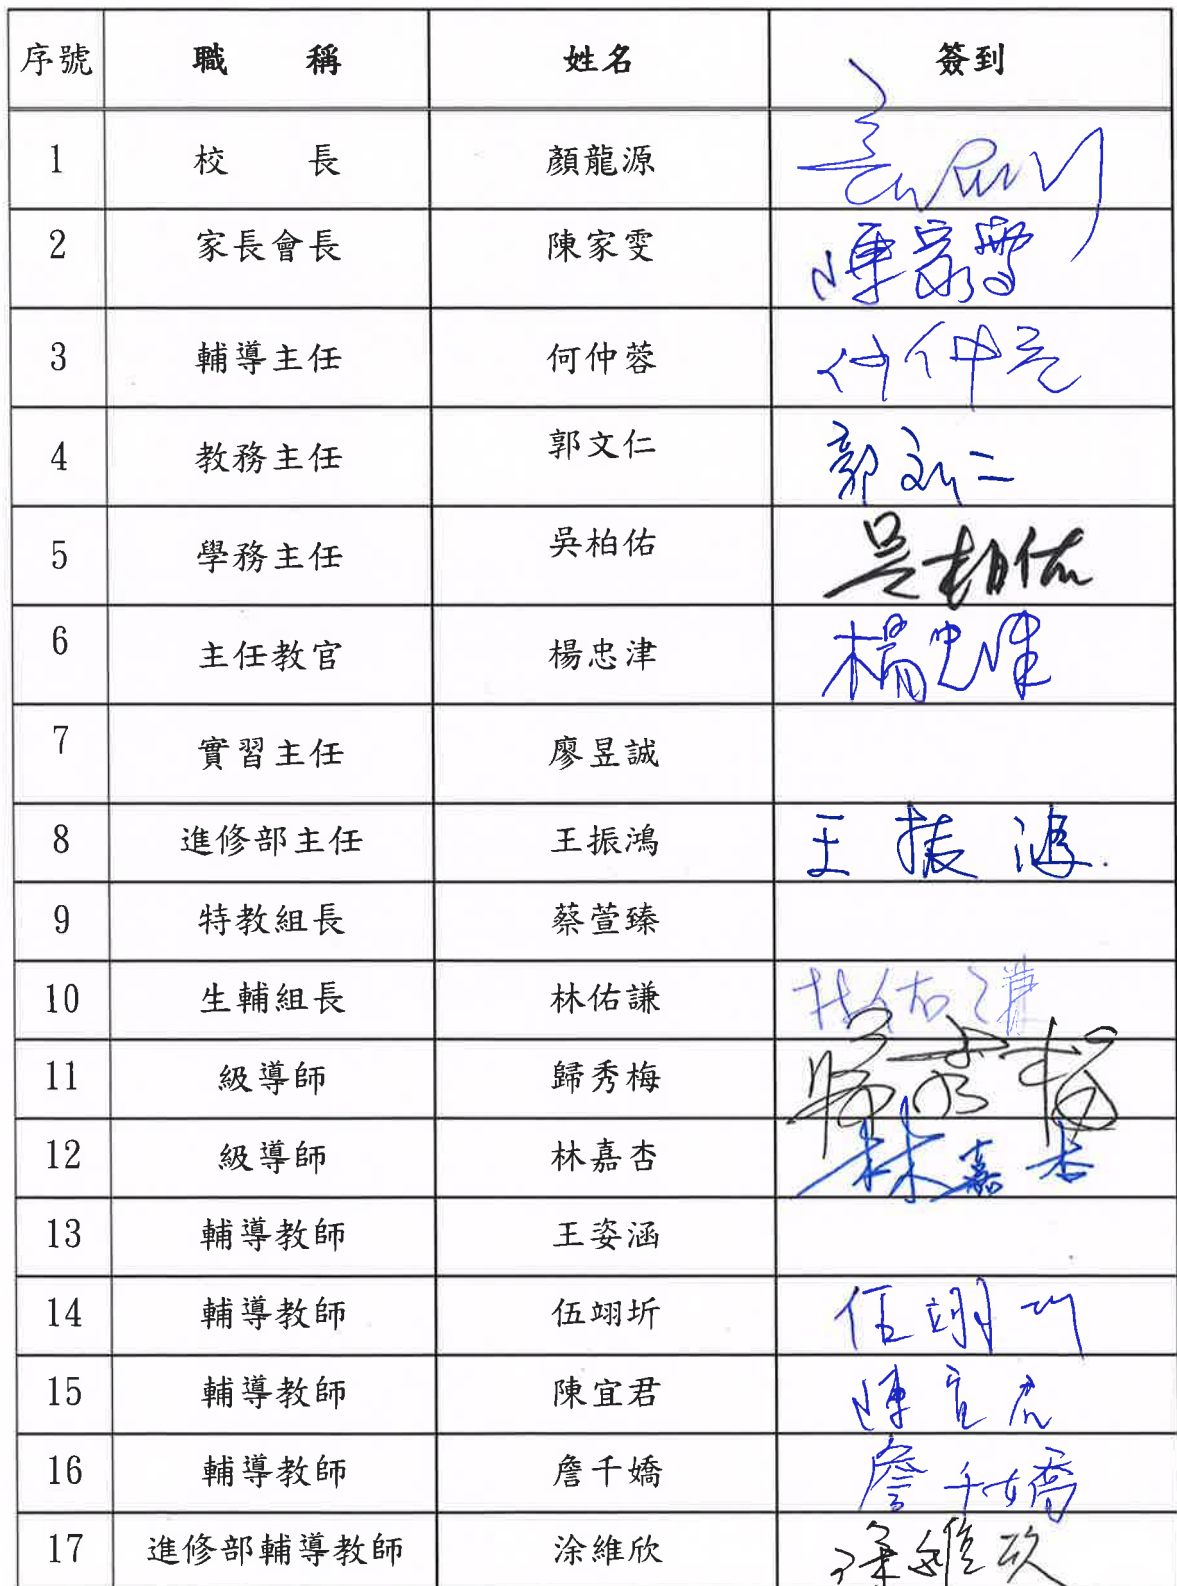 序號 職 稱 姓名 簽到
1 校 長 顏龍源
2 家長會長 陳家雯 陳家雯
3 輔導主任 何仲蓉 何仲蓉
4 教務主任 郭文仁 郭文仁
5 學務主任 吳柏佑 吳柏佑
6 主任教官 楊忠津 楊忠津
7 實習主任 廖昱誠
8 進修部主任 王振鴻 王振鴻
9 特教組長 蔡萱臻
10 生輔組長 林佑謙 林佑謙
11 級導師 歸秀梅 歸秀梅
12 級導師 林嘉杏 林嘉杏
13 輔導教師 王姿涵
14 輔導教師 伍翊圻 伍翊圻
15 輔導教師 陳宜君 陳宜君
16 輔導教師 詹千嬌 詹千嬌
17 進修部輔導教師 涂維欣 涂維欣